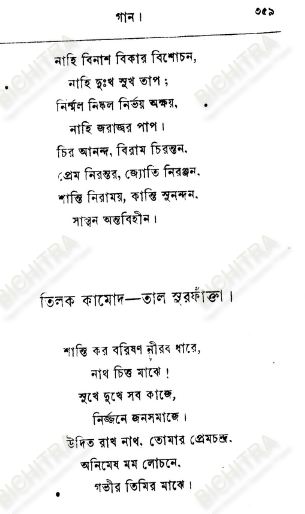 গান ।
৩৫৯
নাহি বিনাশ বিকার বিশোচন,
নাহি দুঃখ সুখ তাপ ;
নির্ম্মল নিষ্কল নির্ভয় অক্ষয়,
নাহি জরাজ্বর পাপ ।
চির আনন্দ, বিরাম চিরন্তন,
প্রেম নিরন্তর, জ্যোতি নিরঞ্জন,
শান্তি নিরাময়, কান্তি সুনন্দন,
সান্ত্বন অন্তবিহীন ।
তিলক কামোদ—তাল সুরফাঁক্তা ।
শান্তি কর বরিষণ নীরব ধারে,
নাথ চিত্ত মাঝে !
সুখে দুখে সব কাজে,
নির্জ্জনে জনসমাজে ।
উদিত রাখ নাথ, তোমার প্রেমচন্দ্র
অনিমেষ মম লোচনে,
গভীর তিমির মাঝে ।
BICHITRA